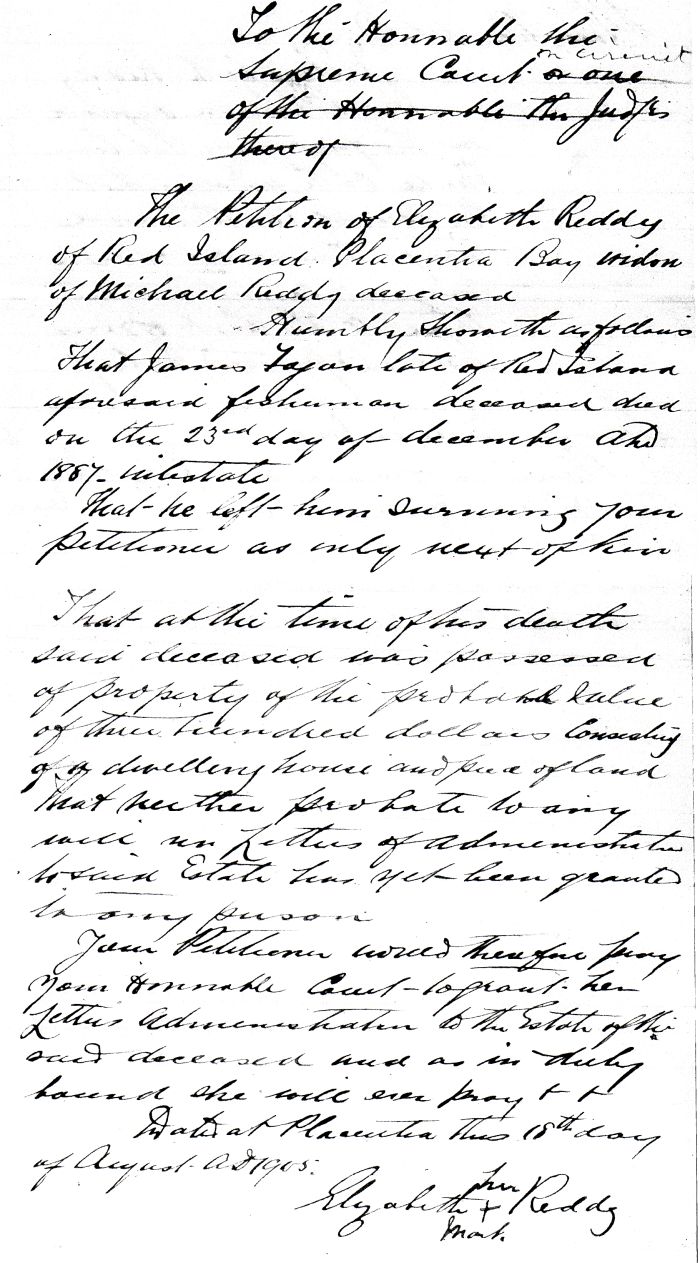 To the Honnable the
on circuit
Supreme Court or one
of the Honnable the Judges
thereof
The Petition of Elizabeth Reddy
of Red Island Placentia Bay widow
of Michael Reddy deceased
Humbly Showeth as follows
That James Fagan late of Red Island
aforesaid fisherman deceased died
on the 23rd day of december AD
1887 - intestate
That he left him surviving your
petitioner as only next of kin
That at the time of his death
said deceased was possessed
of property of the probable value
of three hundred dollars Consisting
of a dwelling house and piece of land
That neither probate to any
will nor Letters of Administration
to said Estate has yet been granted
to any person
Your Petitioner would therefore pray
your Honnable Court to grant her
Letters Administration to the Estate of the
said deceased and as in duty
bound she will ever pray + +
Dated at Placentia this 18th day
of August AD 1905.
her
Elizabeth + Reddy
Mark.